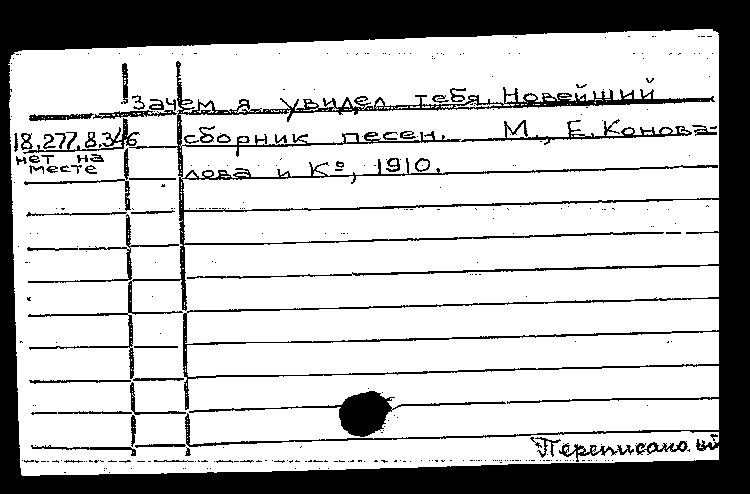 Зачем я увидел тебя. Новейший
18.277.8.346 сборник песен. М., Е. Конова-
нет на
месте
лова и Кº, 1910.
Переписано.